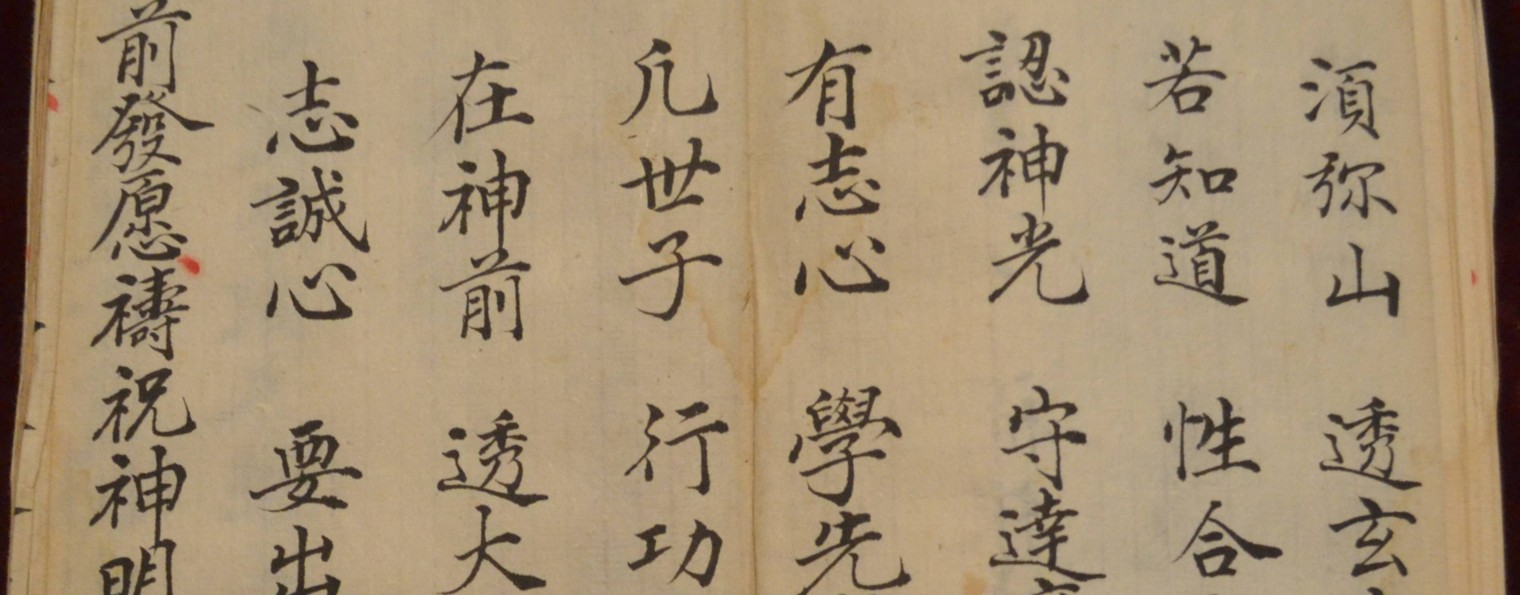 須弥山 透玄
若知道 性合
認神光 守達
有志心 學先
凢世子 行功
在神前 透大
志誠心 要出
前發愿禱祝神明